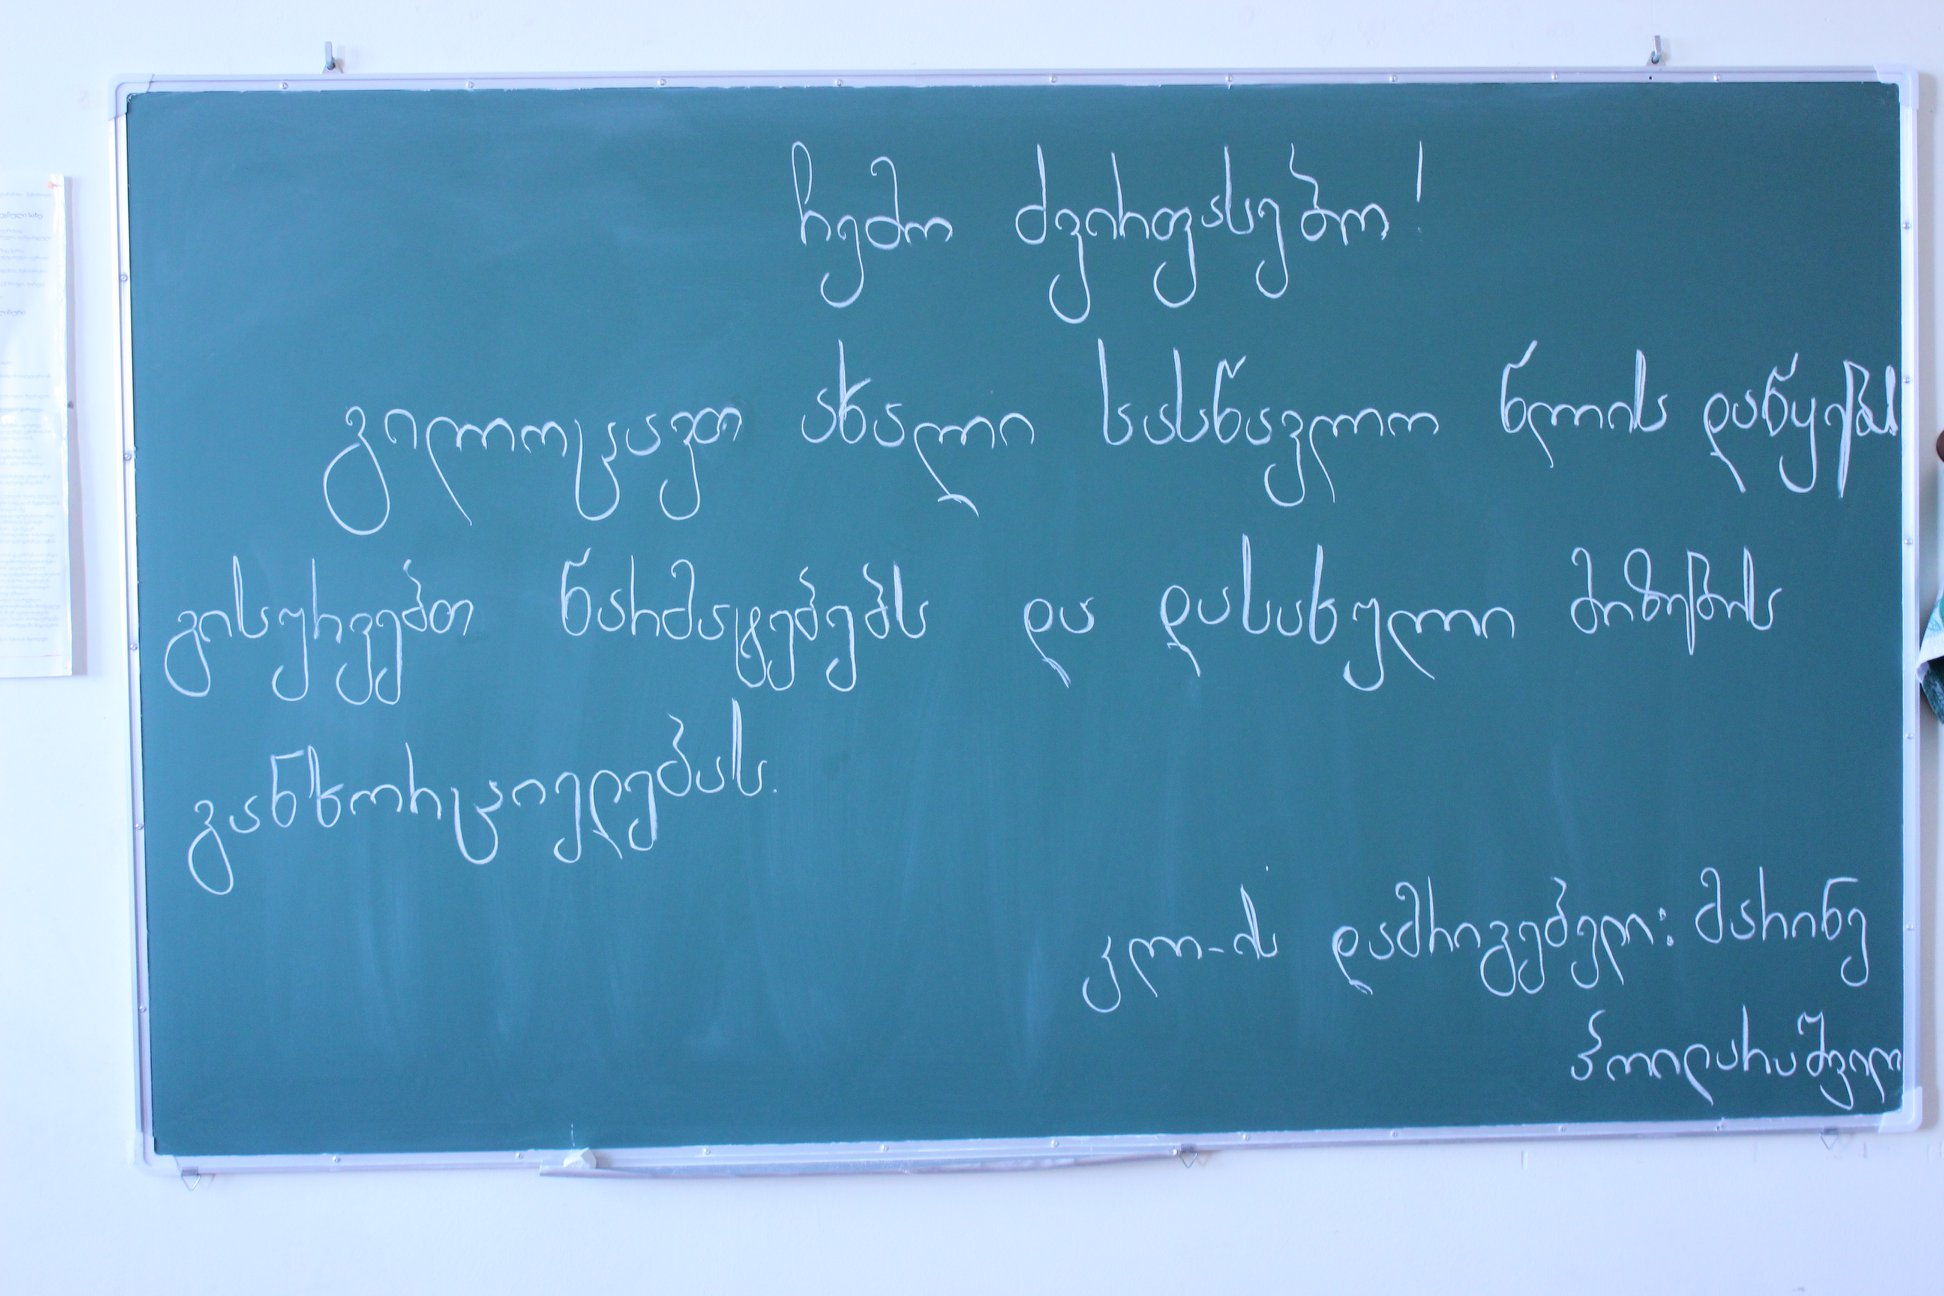 ჩემო ძვირფასებო!
გილოცავთ ახალი სასწავლო წლის დაწყებას
გისურვებთ წარმატებებს და დასახული მიზნების
განხორციელებას.
კლ-ის დამრიგებელი: მარინე
პოიდარაშვილი